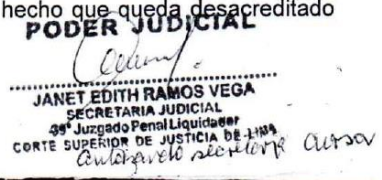 hecho que queda desacreditado
PODER JUDICIAL
JANET EDITH RAMOS VEGA
SECRETARIA JUDICIAL
39° Juzgado Penal Liquidador
CORTE SUPERIOR DE JUSTICIA DE LIMA
secretaria cursor